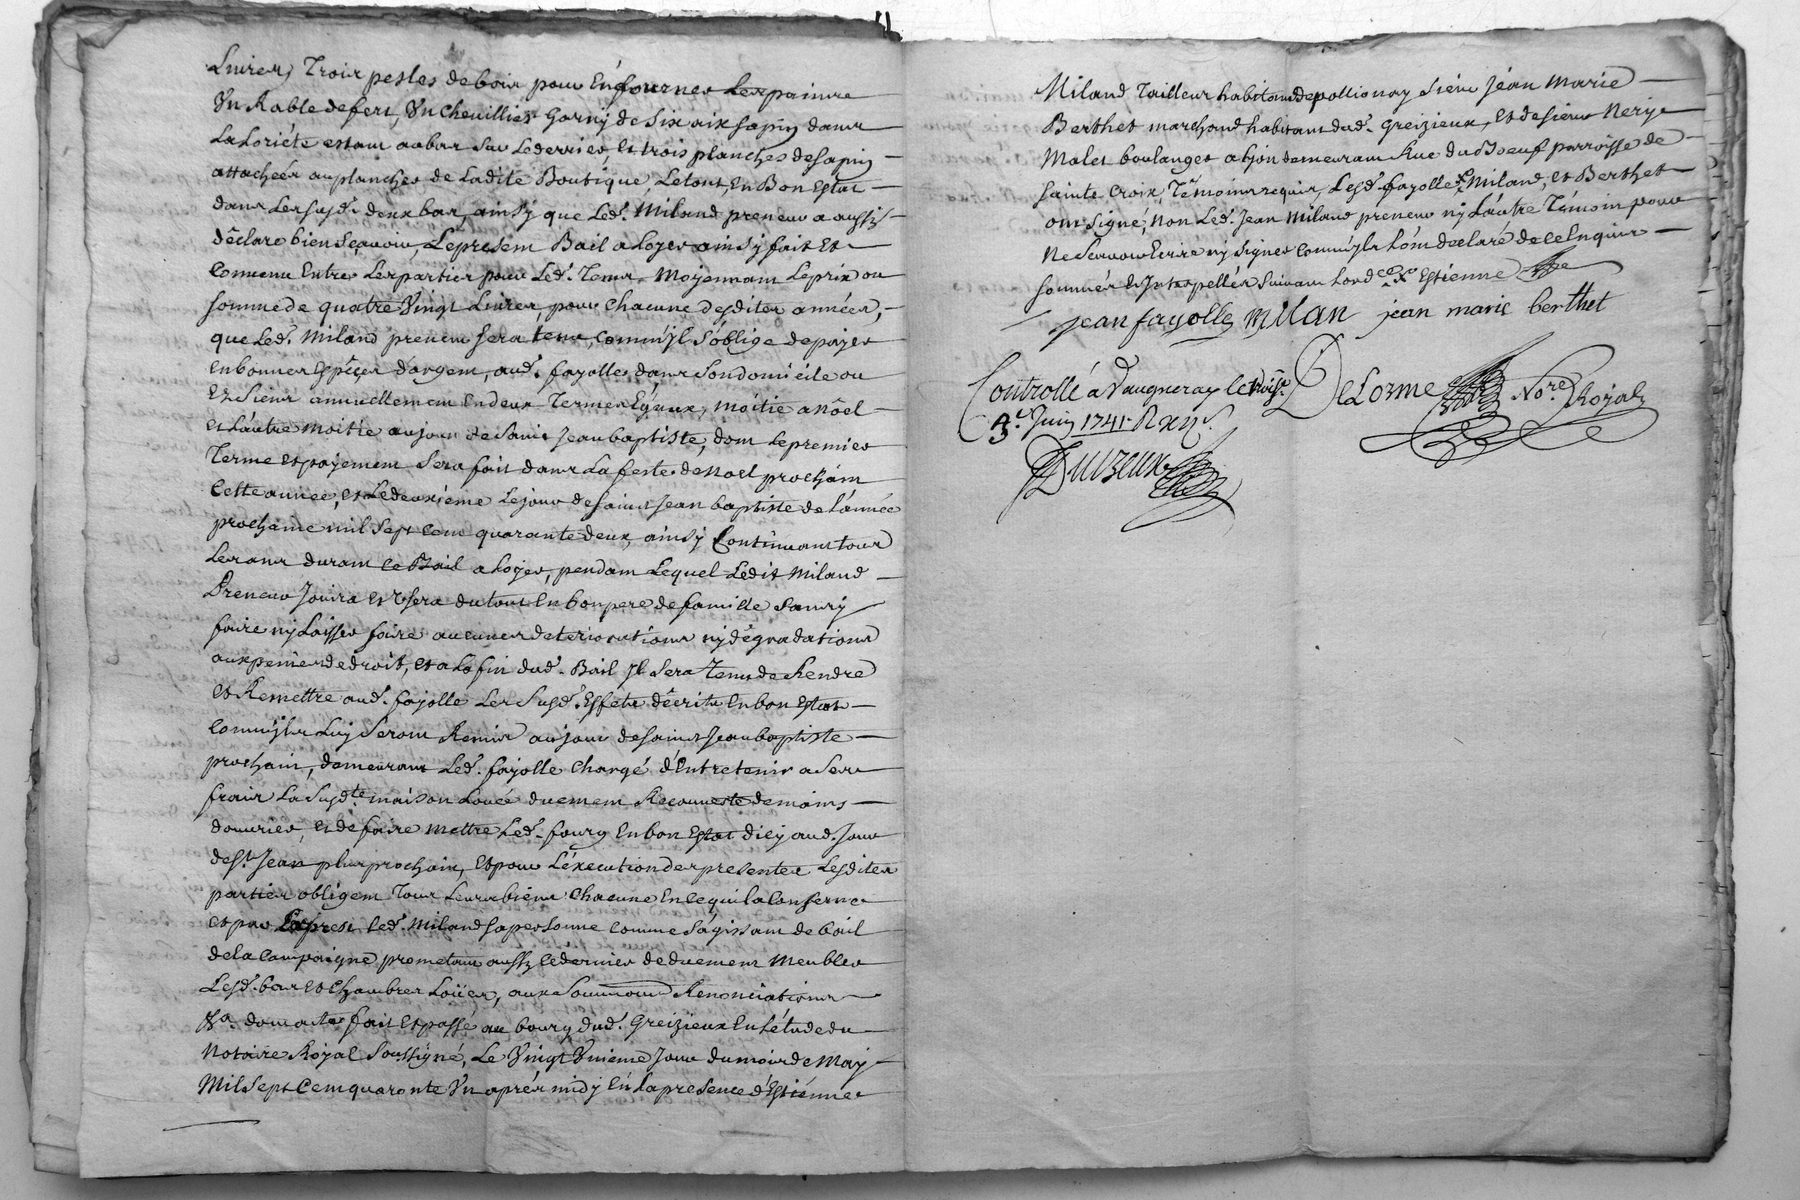 Livres, Trois pesles de bois pour Enfourner Les pains
Un Rable de fert, Un Chevillier Garny de Six aix Sapin dans
La Loriéte estant au bas Sur Le derrier, et trois planches de Sapin
attachées au plancher de Ladite Boutique, Le tout En Bon Estat
dans Les susd. deux bas, ainsy que Led. Miland preneur a aussy
déclaré bien Sçavoir, Le present Bail a Loyer ainsy fait Et
Convenu Entre Les parties pour Led. Tems Moyennant Le prix ou
somme de quatre Vingt Livres, pour Chacune desdites années,
que Led. Miland preneur sera tenu, Comm'jl S'oblige de payer
En bonnes Espéçes d'argent, aud. fayolle dans Son domicile ou
Es Siens annuellement En deux Termes Egaux, moitié a Nöel
et L'autre moitié au jour de Saint Jean baptiste, dont Le premier
Terme et payement Sera fait dans La feste de Noel prochain
Cette année, et Le deuxiéme Le jour de Saint Jean baptiste de L'année
prochaine mil Sept Cent quarante deux, ainsy Continuant tous
Les ans durant Ce Bail a Loyer, pendant Lequel Ledit Miland
Preneur Jouira et Usera du tout En bon pere de famille Sans y
faire ny Laisser faire aucunes deteriorations ny dégradations
aux peines de droit, et a La fin dud. Bail Jl Sera Tenu de Rendre
et Remettre aud. fayolle Les Susd. Effets décrits En bon Estat
Comm'jls Luy Seront Remis au jour de Saint Jean baptiste
prochain, demeurant Led. fayolle Chargé d'Entretenir a Ses
frais La Susdte. maison Loüée duement Recouverte de mains
douvrier, et de faire mettre Led. fourg En bon Estat d'icy aud. Jour
de St. Jean plus prochain, et pour L'éxecution des presentes Lesdites
parties obligent Tous Leurs biens Chacune En Ce qui la Conserne
et par Exprest Led. Miland sa personne Comme S'agissant de bail
de La Campaigne prometant aussy Ce dernier de duement Meubler
Lesd. bas et Chambres Loüés, aux Soumissions Renonciations
&a. dont acte fait et passé au bourg dud. Greizieux En L'étude du
Notaire Royal Soussigné, Le Vingt Unieme Jour du mois de May
Mil Sept Cent quarante Un aprés midy En La presence d'Estienne
Miland Tailleur habitant de pollionay Sieur Jean Marie
Berthet marchand habitant dud. Greizieux, et de Sieur Nery
Molet boulanger a Lyon demeurant Rue du Boeuf parroisse de
Sainte Croix, Témoins requis, Lesd. fayolle Miland, et Berthet
ont Signé, Non Led. Jean Miland preneur ny L'autre Témoin pour
Ne Scavoir Ecrire ny Signer Comm'jls L'ont declaré de Ce Enquis
Sommés et Jnterpellés Suivant Lord.ce Estienne
jean fayolle milan jean marie berthet
Controllé a Vaugneray le troisie.
3e. Juin 1741. R
DeLorme No.re Royal
Duizeux